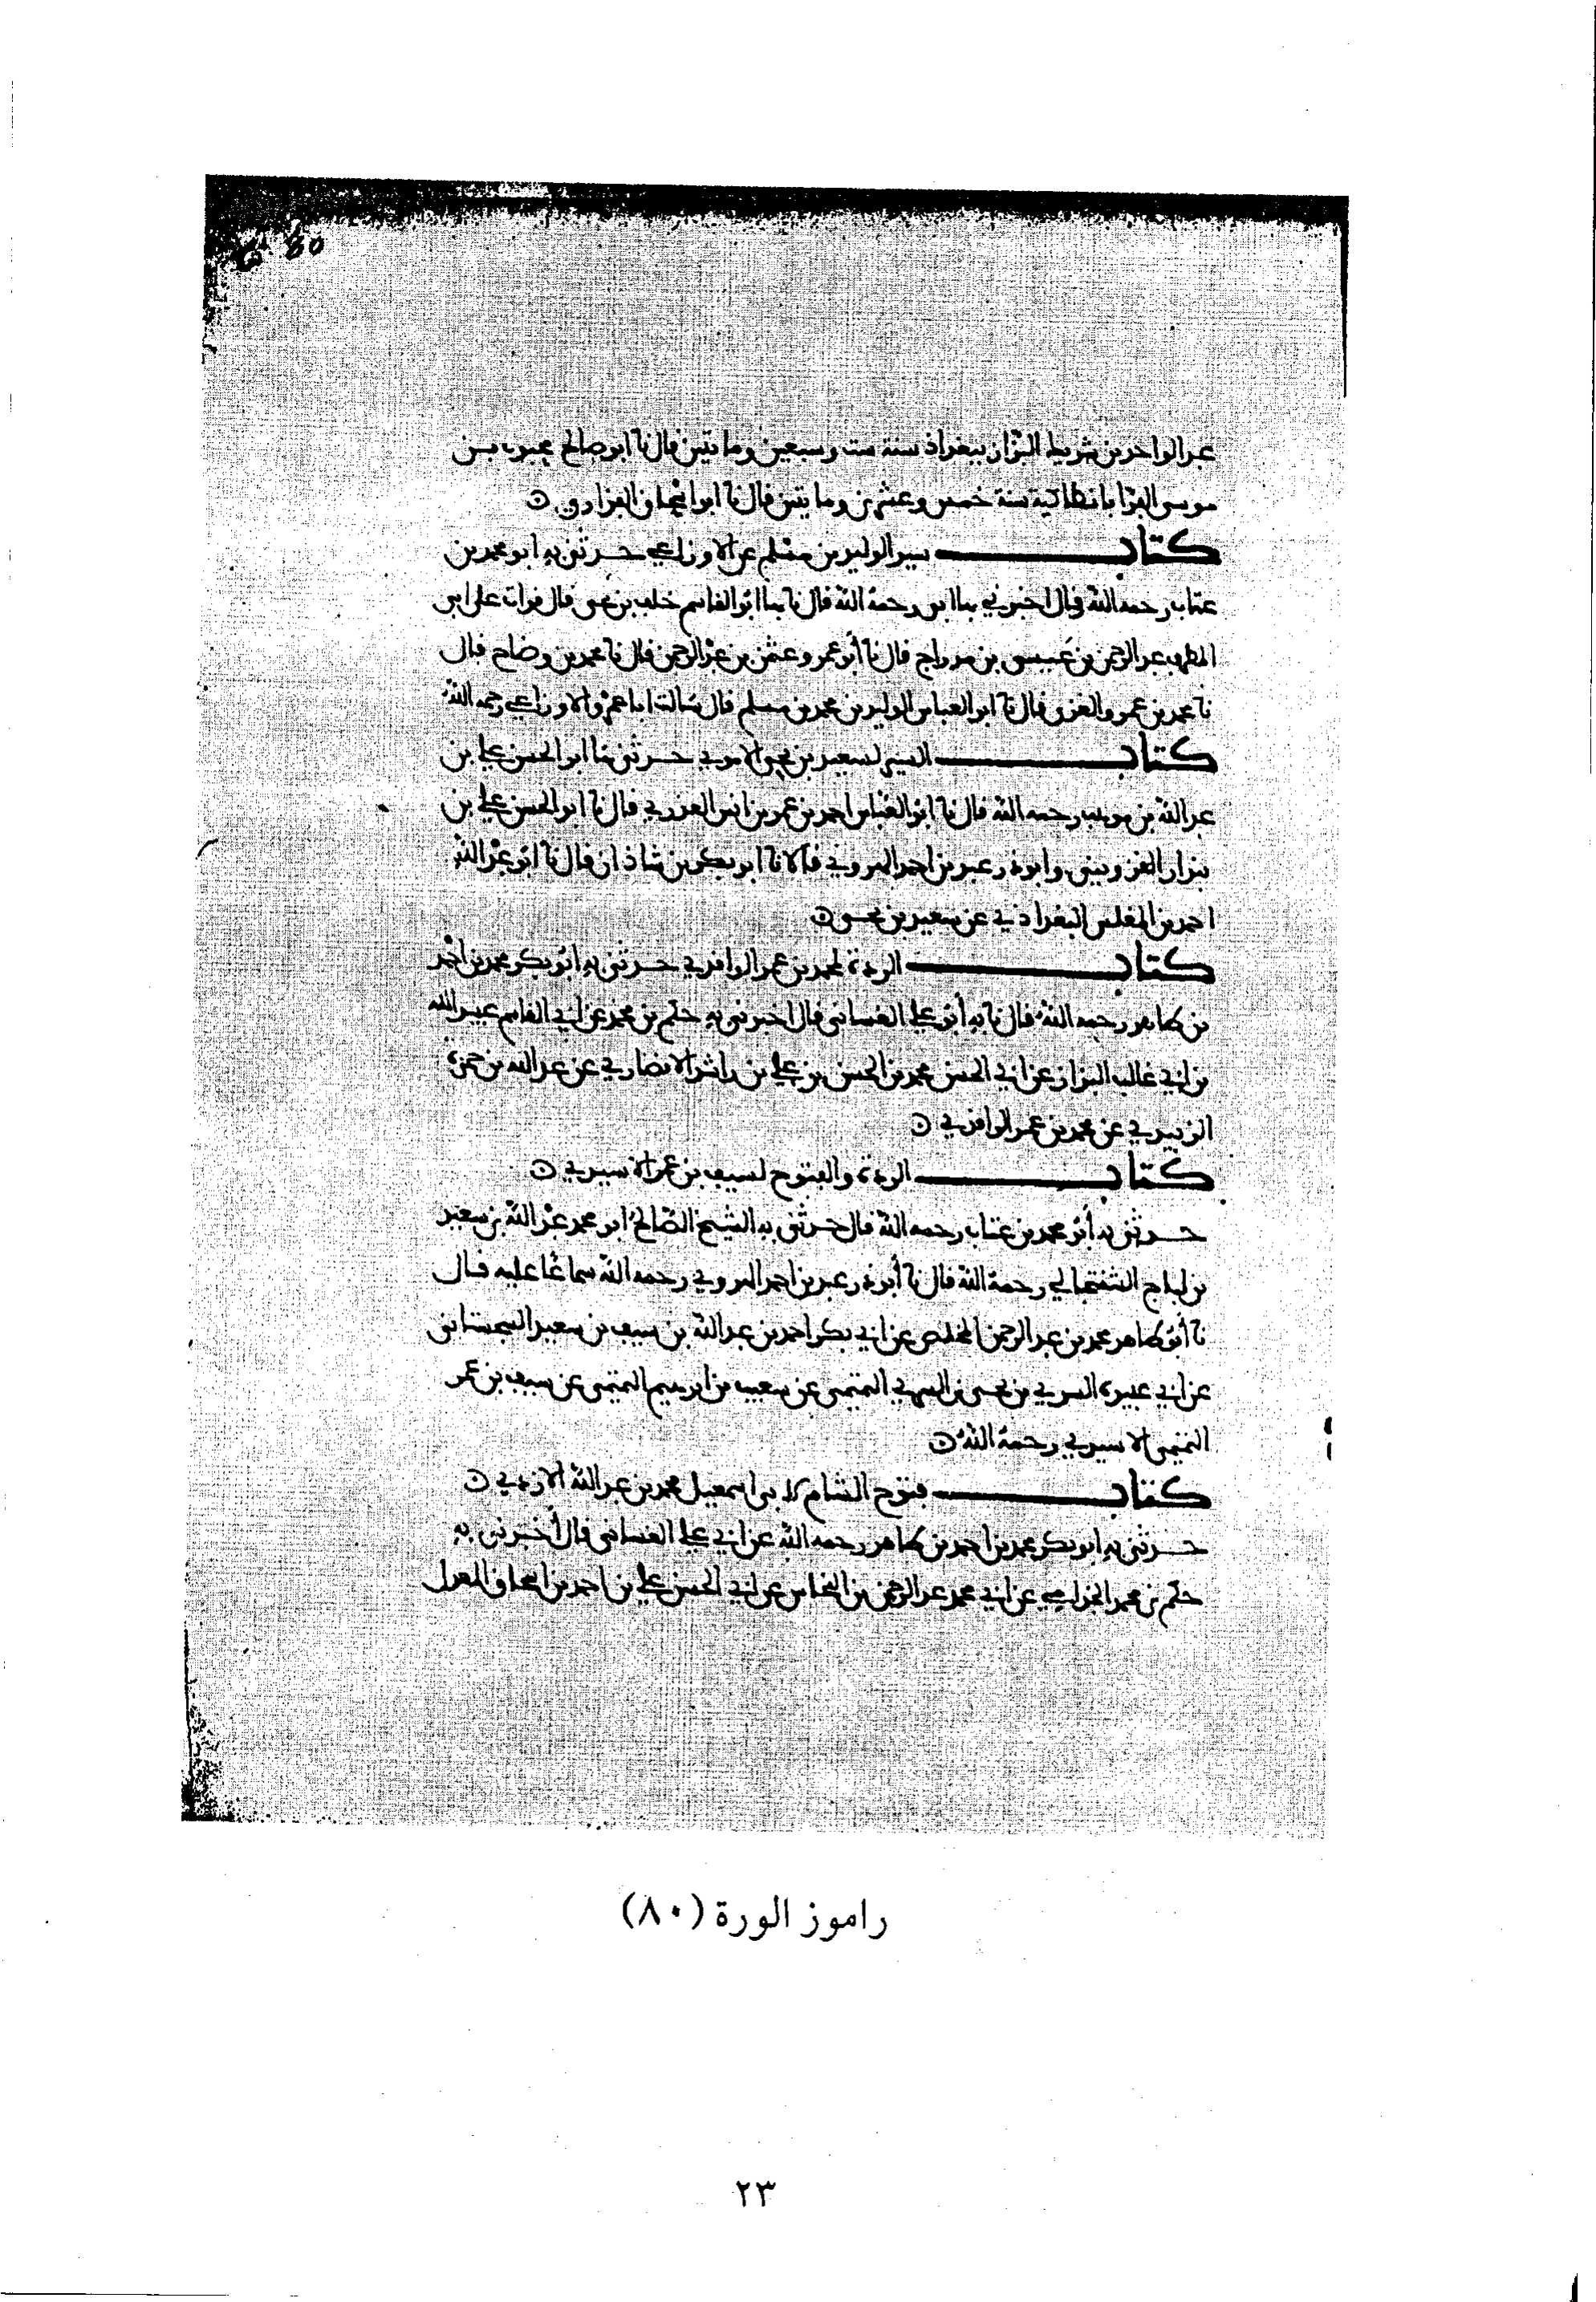 80
عبد الواحد بن شريط البزار ببغداد سنة ست وسبعين ومائتين قال نا ابو صالح محبوب بن
موسى الفرا بانطاكية سنة خمس وعشرين ومائتين قال نا ابو اسحاق الفزاري
كتاب سير الوليد بن مسلم عن الاوزاعي حدثني به ابو محمد بن
عتاب رحمه الله قال اخبرني بها ابي رحمه الله قال نا بها ابو القاسم خلف بن يحيى قال قرات على ابي
المطرف عبد الرحمن بن عيسى بن مدراج قال نا أبو عمرو عثمن بن عبد الرحمن قال نا محمد بن وضاح قال
نا محمد بن عمرو الغزي قال نا ابو العباس الوليد بن محمد بن مسلم قال سالت ابا عمرو الاوزاعي رحمه الله
كتاب السير لسعيد بن يحيى الاموي حدثني بها ابو الحسن علي بن
عبد الله بن موهب رحمه الله قال نا ابو العباس احمد بن عمر بن انس العذري قال نا ابو الحسن علي بن
بندار القزويني وابو ذر عبد بن احمد الهروي قالا نا ابو بكر بن شاذان قال نا ابو عبد الله
احمد بن المغلس البغداذي عن سعيد بن يحيى
كتاب الردة لمحمد بن عمر الواقدي حدثني به ابو بكر محمد بن احمد
بن طاهر رحمه الله قال نا به أبو علي الغساني قال اخبرني به حكم بن محمد عن ابي القاسم عبيد الله
بن ابي غالب البزاز عن ابي الحسن محمد بن الحسن بن علي بن راشد الانصاري عن عبد الله بن حمزة
الزبيري عن محمد بن عمر الواقدي
كتاب الردة والفتوح لسيف بن عمر الاسيدي
حدثني به أبو محمد بن عتاب رحمه الله قال حدثني به الشيخ الصالح ابو محمد عبد الله بن سعيد
بن لباج الشنتجالي رحمه الله قال نا أبو ذر عبد بن احمد الهروي رحمه الله سماعا عليه قال
نا أبو طاهر محمد بن عبد الرحمن المخلص عن ابي بكر احمد بن عبد الله بن سيف بن سعيد السجستاني
عن ابي عبيدة السري بن يحيى بن السري التميمي عن شعيب بن ابرهيم التميمي عن سيف بن عمر
التميمي الاسيدي رحمه الله
كتاب فتوح الشام لابي اسمعيل محمد بن عبد الله الازدي
حدثني به ابو بكر محمد بن احمد بن طاهر رحمه الله عن ابي علي الغساني قال أخبرني به
حكم بن محمد الجذامي عن ابي محمد عبد الرحمن بن النحاس عن ابي الحسن علي بن احمد بن اسحاق المعدل
راموز الورة (٨٠)
٢٣